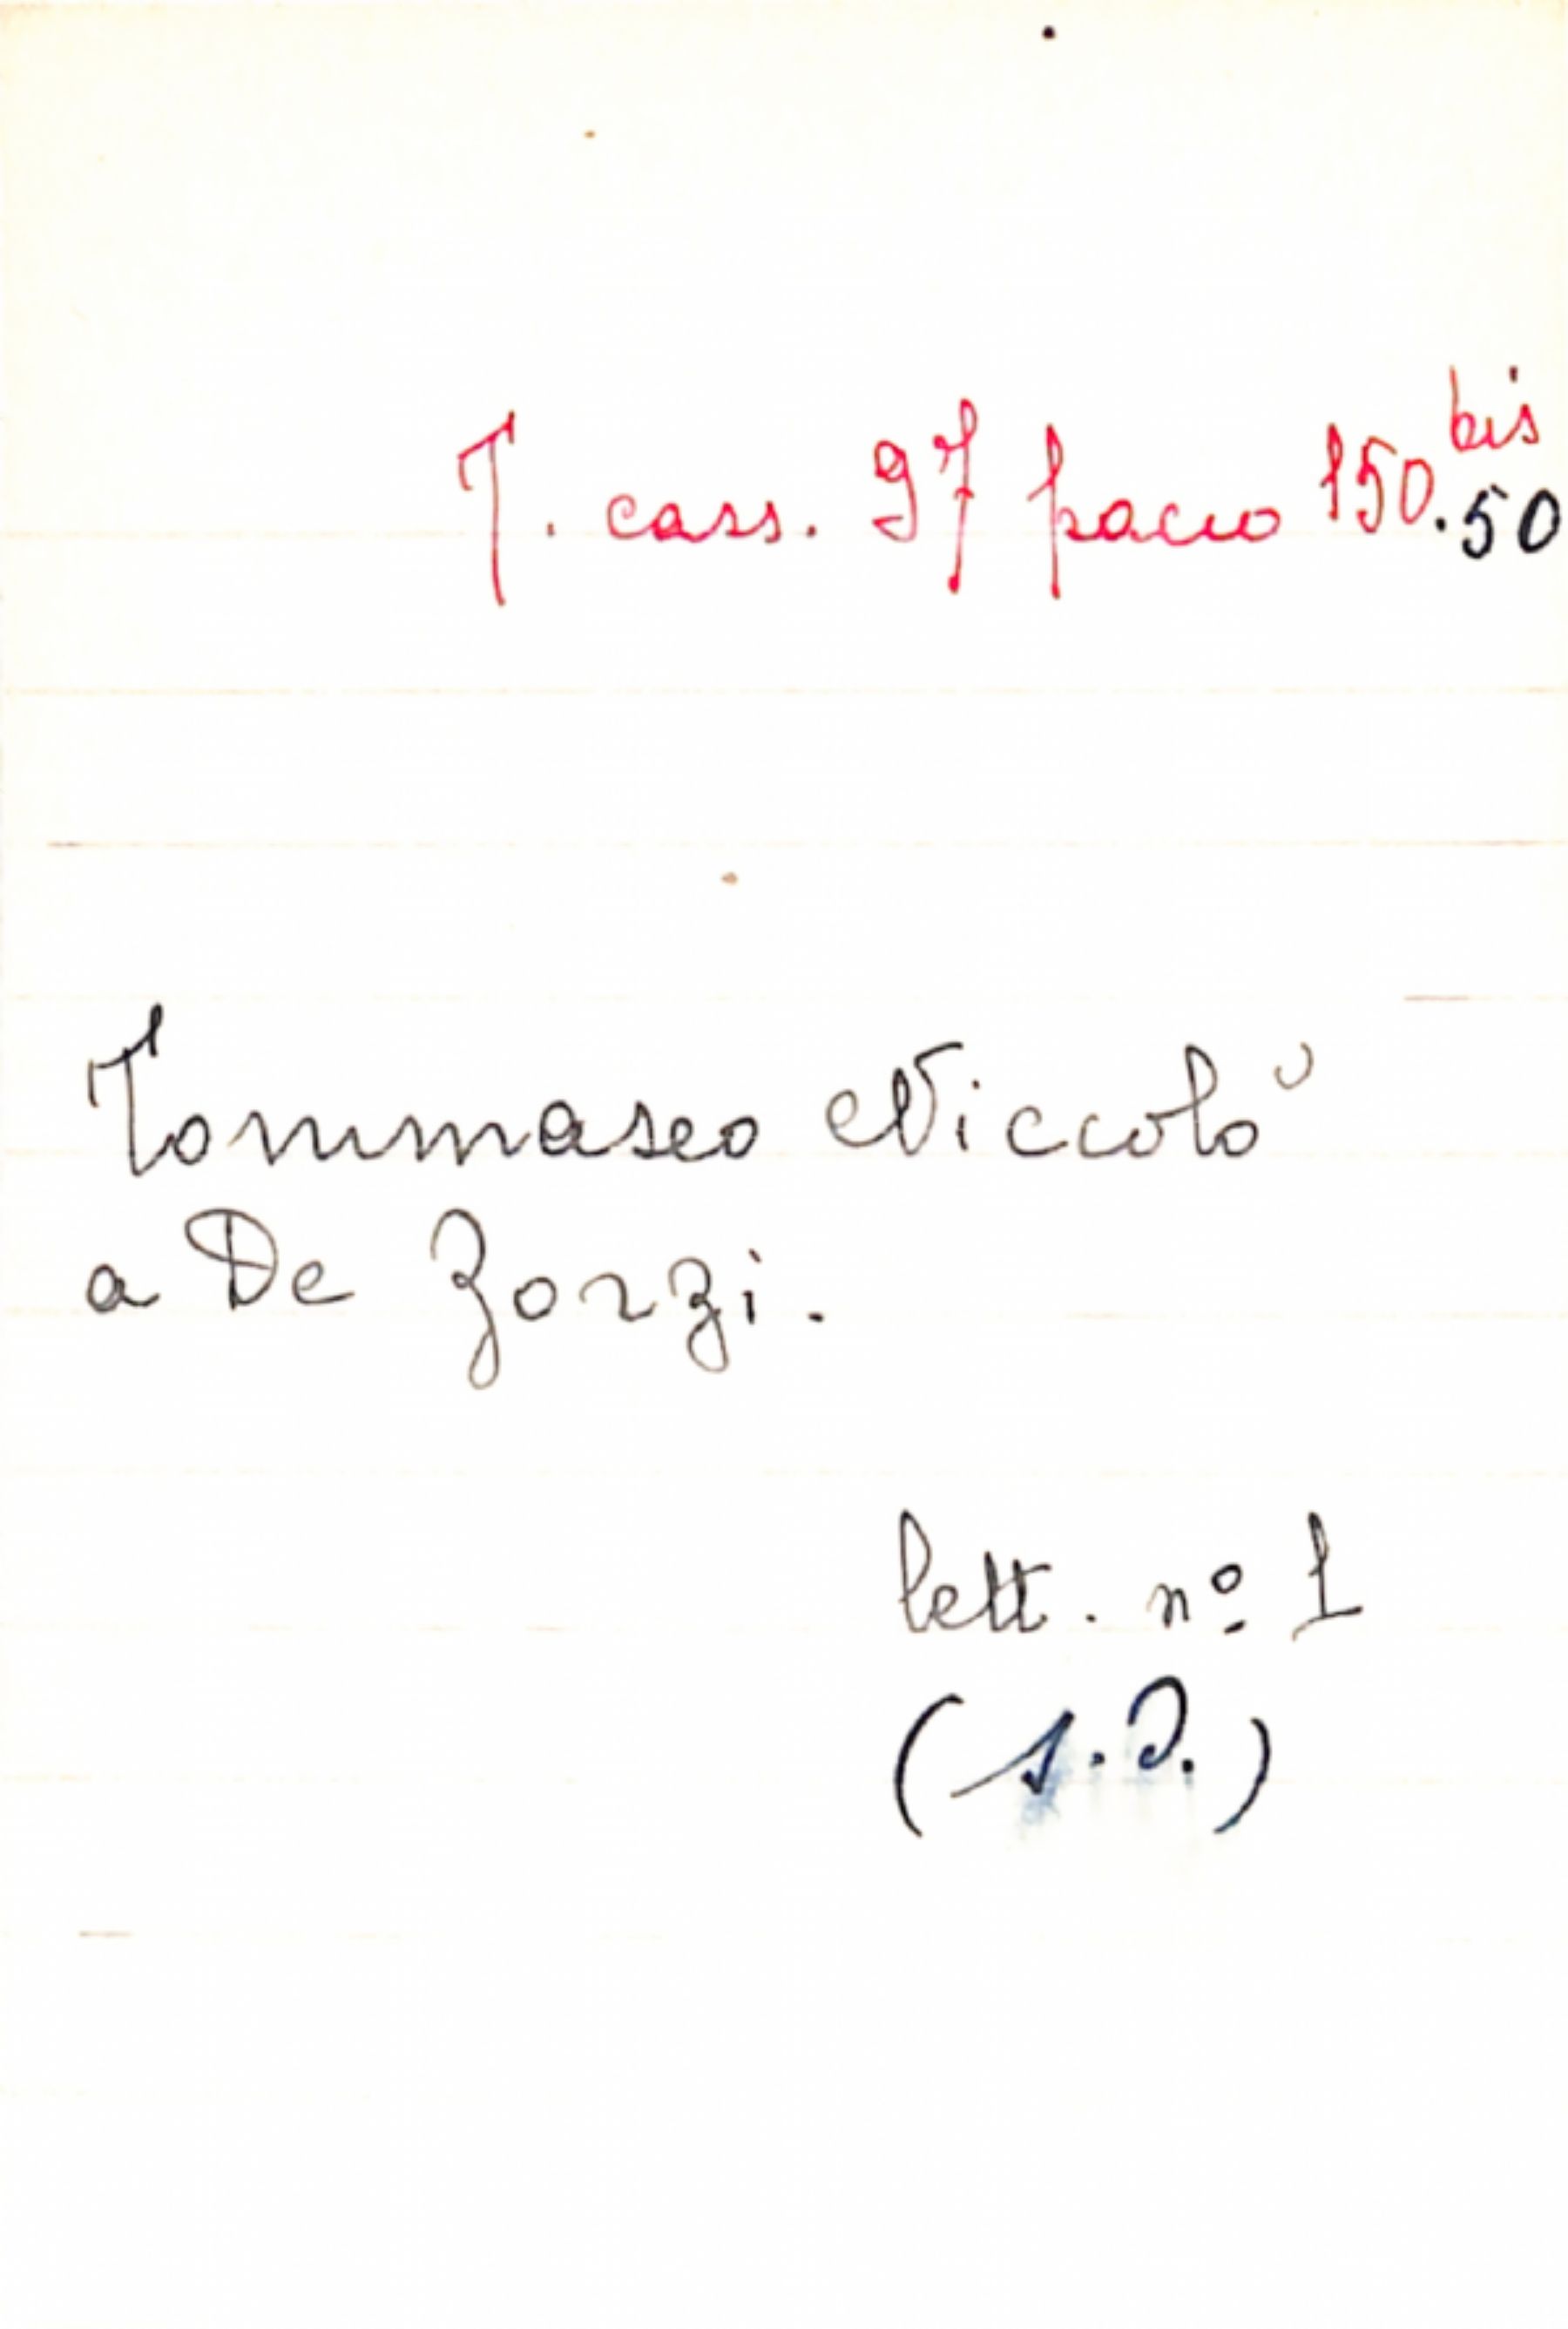 T. cass. 97 pacco 150.bis 50
Tommaseo Niccolò
a De Zorzi.
lett. nº 1
(s.d.)